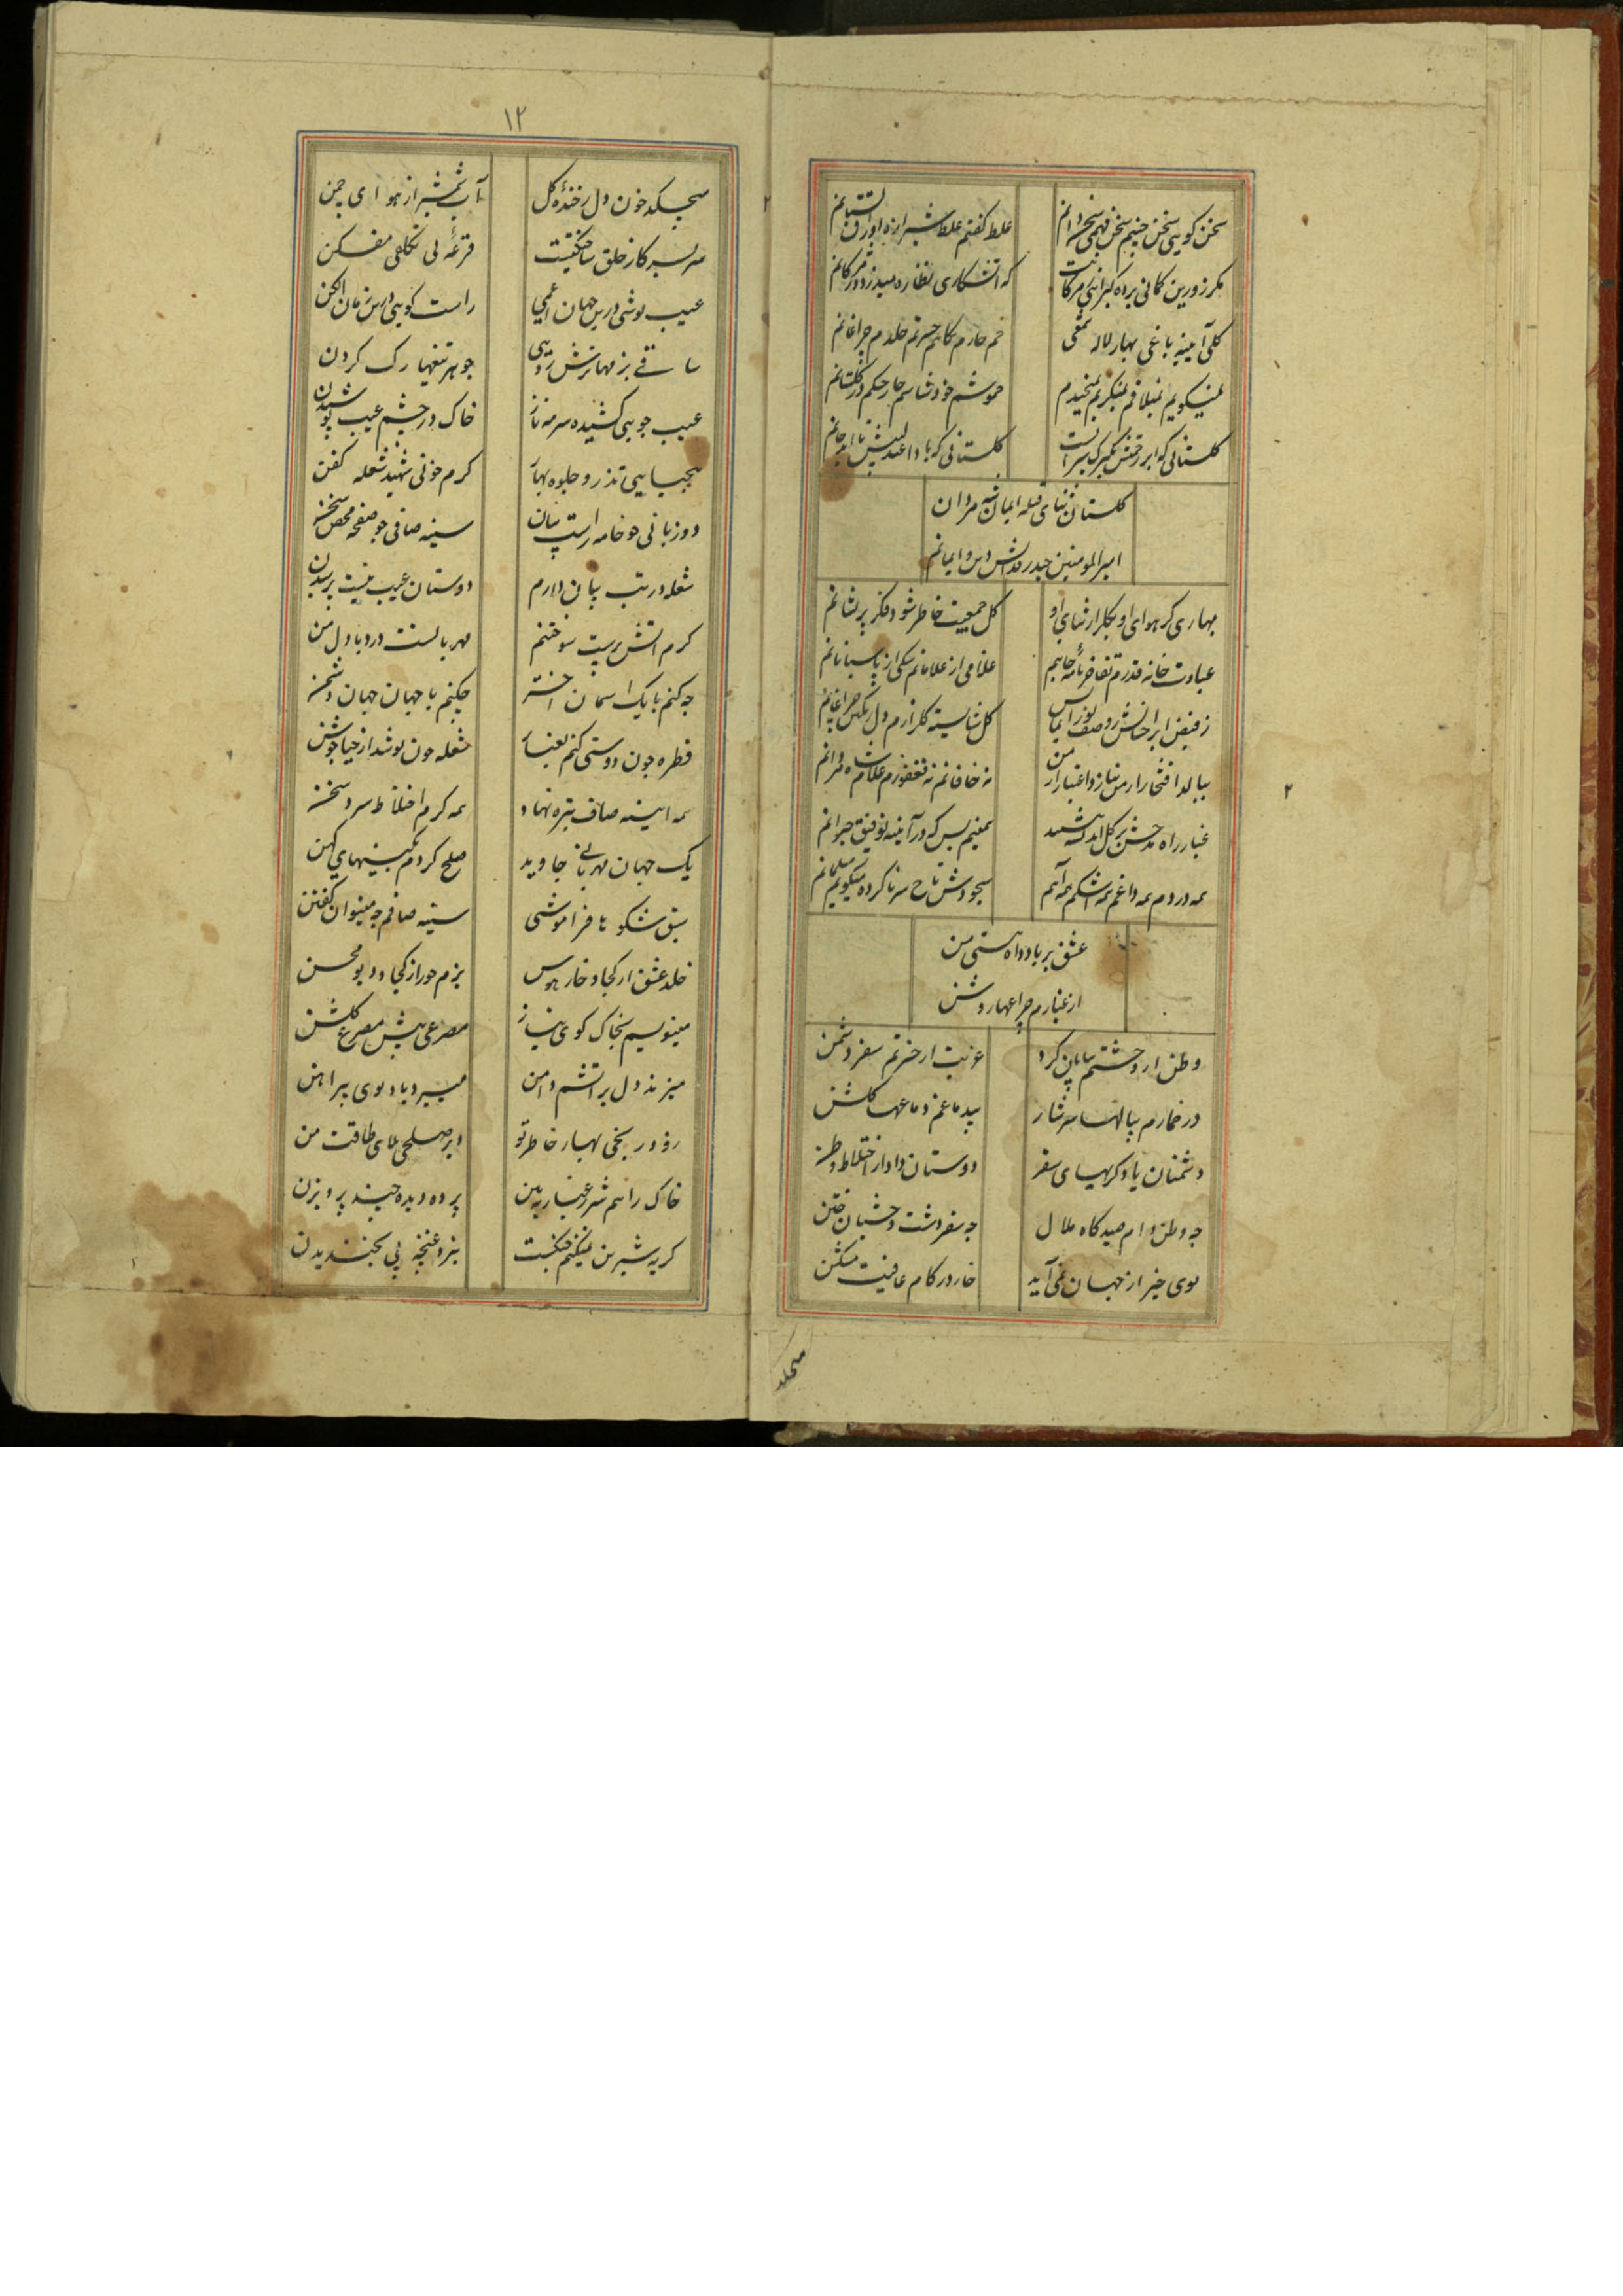 سخن کویی سخن چینم سخن فهمی سخندانم
غلط کفتم غلط شیرازه اوراق
مکر زورین کمانی پرده
که آتشکاری نظاره میدزدد
کلی آیینه باغی بهار لاله
خم خارم کاهم حسرتم خلدم چراغانم
نمیکویم نمیلافم نمیکریم نمیخندم
خموشم خود شناسم
کلستانی که ابر رحمتش
کلستانی که با
کلستان ثنای قبله ایمان شه مردان
امیرالمومنین حیدر
بهاری کز هوای او بکلزار ثنای او
کل جمعیت خاطر شود فکر پریشانم
عبادت خانه قدرم تفاخر نامه جاهم
غلامی از غلامانم سکی از پاسبانانم
ز فیض ابر احسانش
کل شایسته کلزارم
ببالد افتخار از من بنازد اعتبار از من
نه خاقانم نه فغفورم غلام شاه مردانم
غبار راه
همینم بس که در آیینه توفیق حیرانم
همه دردم همه داغم همه اشکم همه آهم
سجودش تاج سر نا کرده میکویم مسلمانم
عشق بر باد داد هستی من
از غبارم چراغها روشن
وطن از وحشتم بیابان کرد
غربت از حسرتم سفر دشمن
در خمارم پیالها سرشار
بیدماغم دماغها کلشن
دشمنان یاد کربهای سفر
دوستان داد از اختلاط وطن
چه وطن دام صیدکاه ملال
چه سفر دشت وحشیان ختن
بوی خیر از جهان نمی آید
خار در کام عافیت مشکن
میچکد
۱۲
میچکد خون دل ز خنده کل
آب شمشیر از هوای چمن
سر بسر کار خلق ساختکیست
قرعه بی تکلفی مفکن
عیب پوشی درین جهان اعمی
راست کویی درین زمان الکن
ساقی بزمها ترش رویی
جوهر تیغها رک کردن
عیب جویی کشیده سرمه ناز
خاک در چشم عیب پوشیدن
تذرو جلوه بهار
کرم خونی شهید شعله کفن
دو زبانی چو خامه راست بیان
سینه صافی چو صفحه محض سخن
شعله در تب بیان دارم
دوستان عیب نیست پرسیدن
کرم آتش پرست سوختنم
مهربانست درد با دل من
چه کنم با یک آسمان اختر
چکنم با جهان جهان دشمن
قطره چون دوستی کنم بغبار
شعله چون پوشد از حیا جوشن
همه آیینه صاف تیره نهاد
همه کرم اختلاط سرد سخن
یک جهان مهربانی جاوید
صلح کردم بکینهای کهن
سبق شکوها فراموشی
سینه صافم چه میتوان کفتن
خلد عشق از کجا و خار هوس
بزم حور از کجا و دیو محن
مینویسم بخاک کوی نیاز
مصرعی پیش مصرع کلشن
میزند دل بر آتشم دامن
میبرد باد بوی پیراهن
زود رنجی بهار خاطر تو
دیر صلحی بلای طاقت من
خاک را هم شرر غبار ببین
پرده دیده چیند پرویزن
کریه شیرین نمیکنم جنکست
بنزد غنچه پی بخندیدن